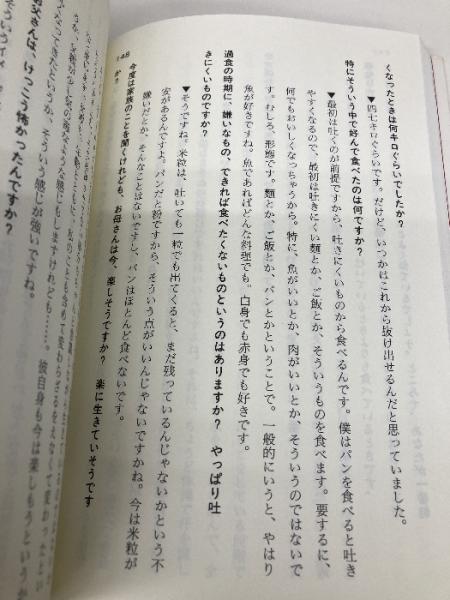 くなったときは何キロぐらいでしたか？
▼四七キロぐらいです。だけど、いつかはこれから抜け出せるんだと思っていました。
特にそういう中で好んで食べたのは何ですか？
▼最初は吐くのが前提ですから、吐きにくいものから食べるんです。僕はパンを食べると吐き
やすくなるので、最初は吐きにくい麺とか、ご飯とか、そういうものを食べます。要するに、
何でもおいしくなっちゃうから。特に、魚がいいとか、肉がいいとか、そういうのではないで
す。むしろ、形態です。麺とか、ご飯とか、パンとかということで。一般的にいうと、やはり
魚が好きですね。魚であればどんな料理でも。白身でも赤身でも好きです。
過食の時期に、嫌いなもの、できれば食べたくないものというのはありますか？　やっぱり吐
きにくいものですか？
▼そうですね。米粒は、吐いても一粒でも出てくると、まだ残っているんじゃないかという不
安があるんですよ。パンだと粉ですから、そういう点がいいんじゃないですかね。今は米粒が
嫌いだとか、そんなことはないですし、パンはほとんど食べないです。
今度は家族のことを聞くけれども、お母さんは今、楽しそうですか？　楽に生きていそうです
か？
148
そういう感じが強いですね。
彼自身も今は楽しもうという
けっこう怖かったんですか？